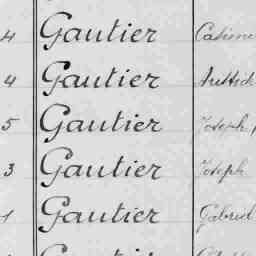 4 Gautier Casimir
4 Gautier
5 Gautier Joseph,
3 Gautier Joseph
1 Gautier Gabriel